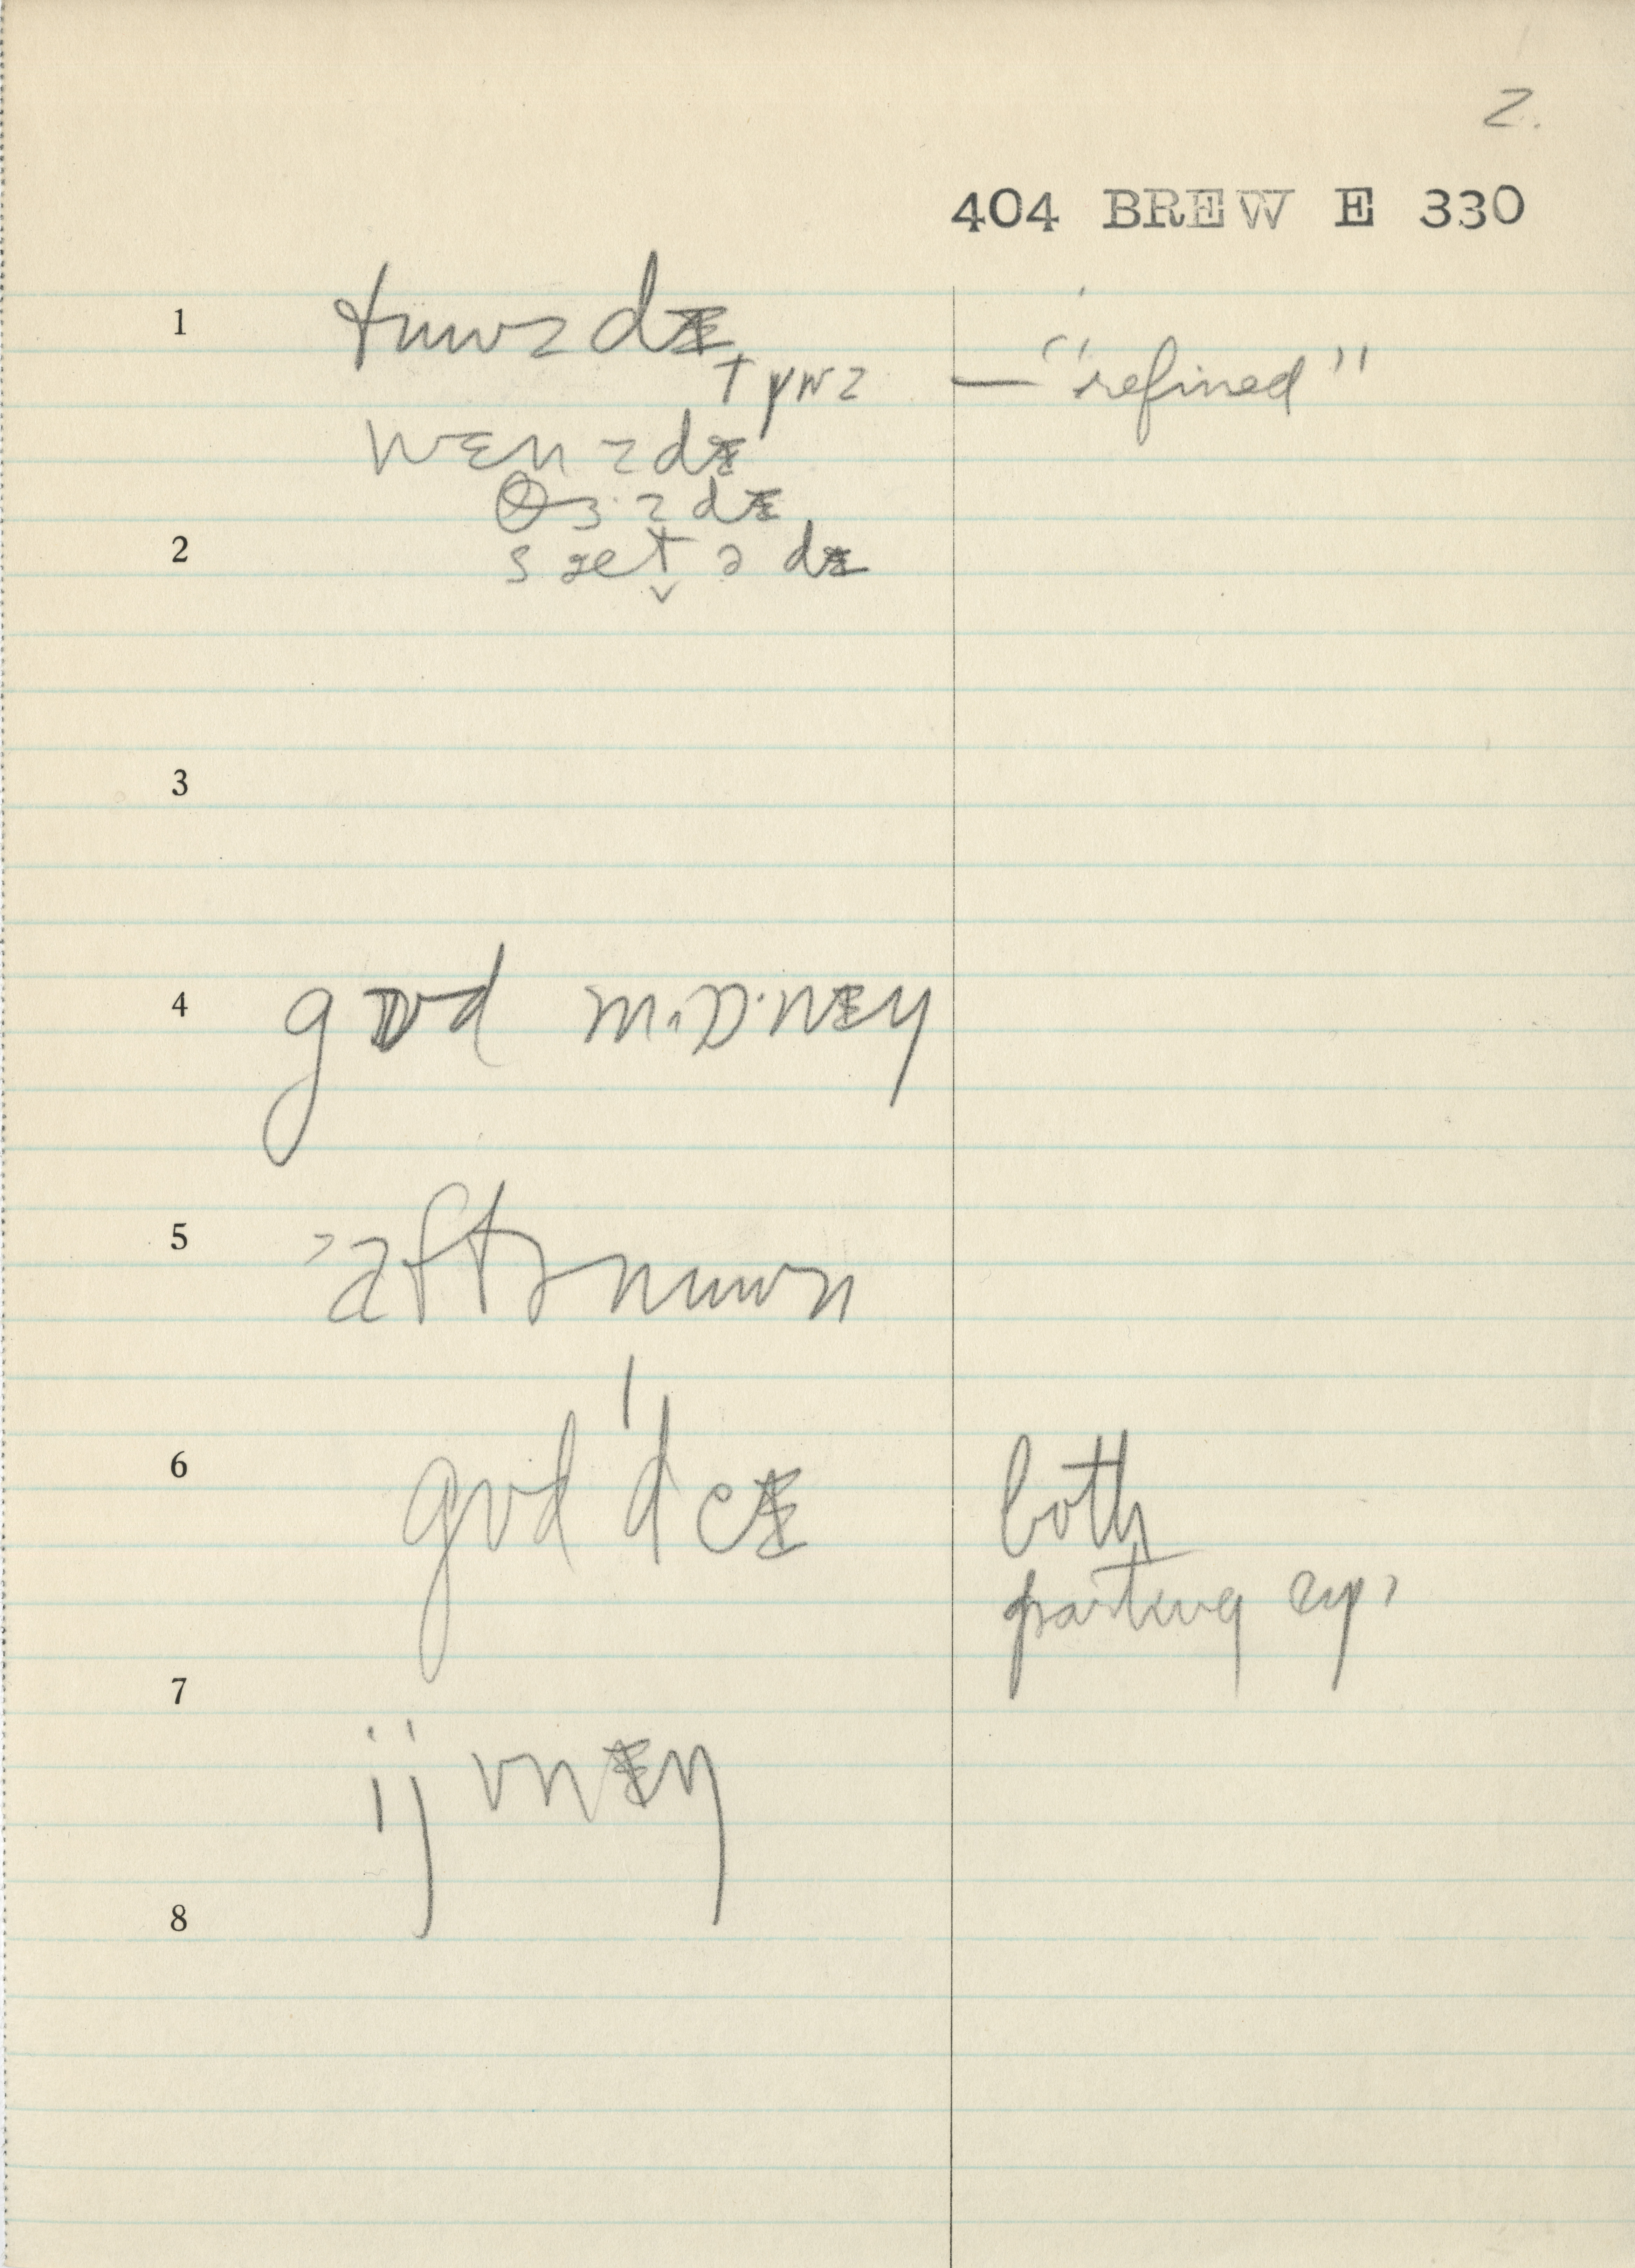 2.
404 BREW E 330
1 tuwzdɪ
tɟuz — "refined"
wɛnzdɪ
θɜ·zdɪ
2 sætədɪ
3
4 gʊd mɒ·nɪŋ
5 aftənuwn
6 gʊd 'deɪ both
parting exp.
7
ijvnɪŋ
8